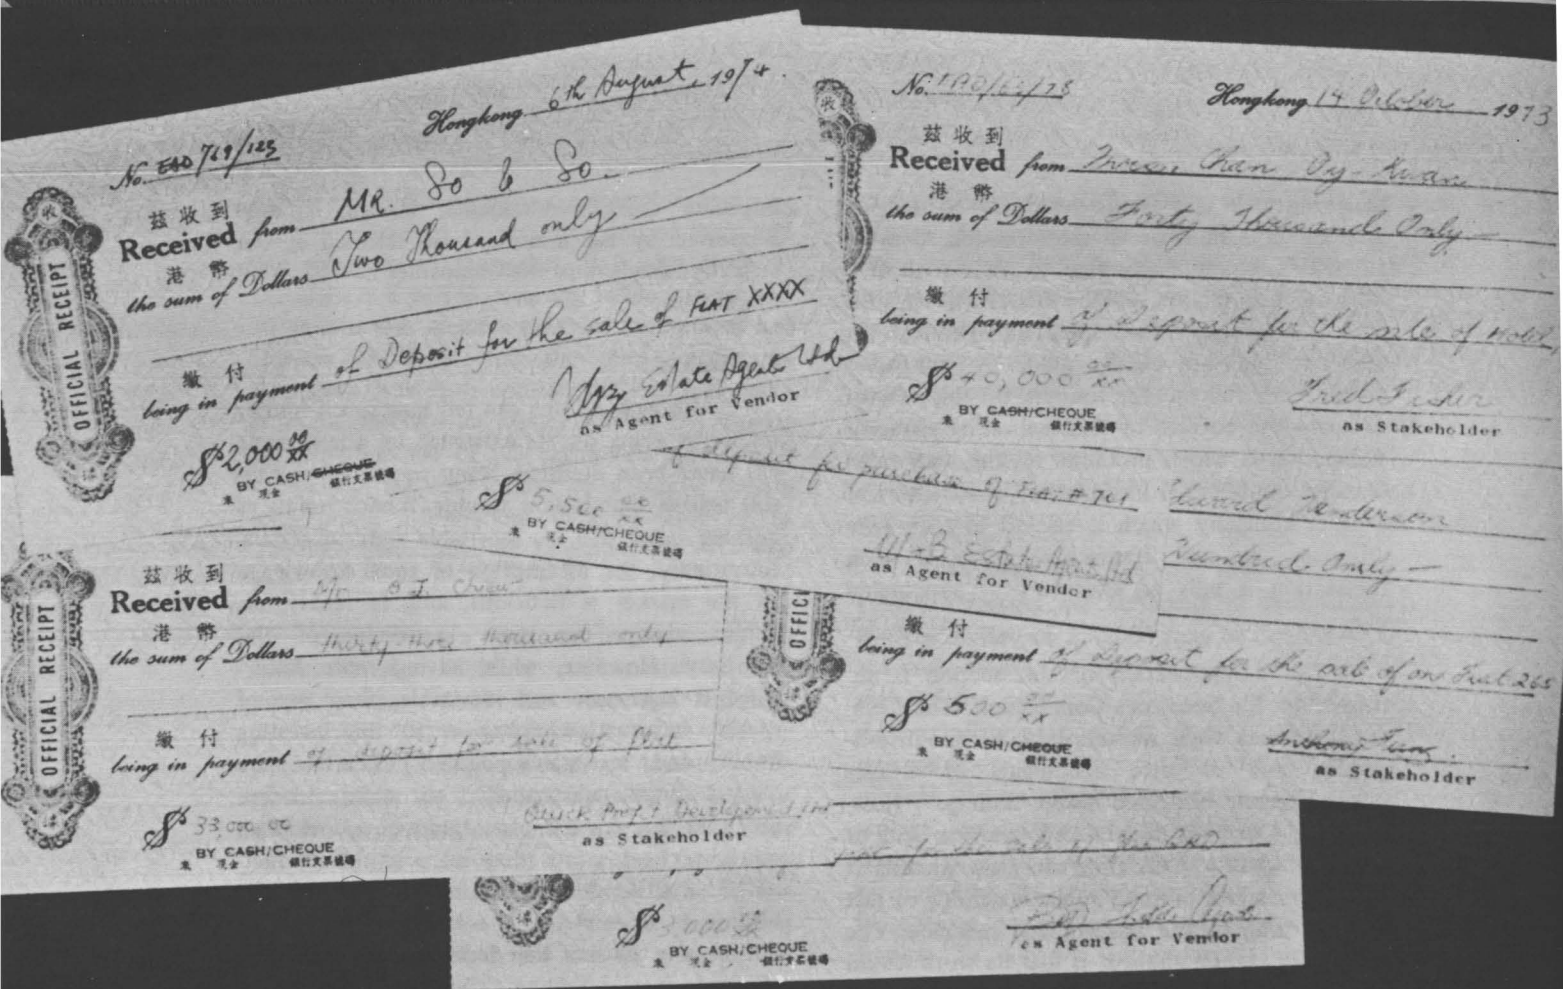 Hongkong 6th August, 1974.
No. EAD 769/123
茲收到
Received from MR. So & So.
港幣
the sum of Dollars Two Thousand only
繳付
being in payment of Deposit for the sale of FLAT XXXX
Estate Agents Ltd
as Agent for Vendor
$2,000 00/XX
BY CASH/CHEQUE
來 現金 銀行支票號碼
OFFICIAL RECEIPT
No.
Hongkong 14 October 1973
茲收到
Received from Chan Oy-Kwan
港幣
the sum of Dollars Forty Thousand Only
繳付
being in payment of Deposit for the sale of
$40,000 00/XX
BY CASH/CHEQUE
來 現金 銀行支票號碼
Fred Fisher
as Stakeholder
of deposit for purchase of FLAT # 761
$5,500 00/XX
BY CASH/CHEQUE
來 現金 銀行支票號碼
Estate Agents Ltd
as Agent for Vendor
Henderson
Hundred Only
繳付
being in payment of Deposit for the sale of one Flat 265
$500 00/XX
BY CASH/CHEQUE
來 現金 銀行支票號碼
Anthony Fung
as Stakeholder
OFFICI
茲收到
Received from Mr.
港幣
the sum of Dollars thirty-three thousand only
繳付
being in payment of deposit for sale of flat
$33000 00
BY CASH/CHEQUE
來 現金 銀行支票號碼
Quick Profit Development Ltd
as Stakeholder
OFFICIAL RECEIPT
for the sale of
$3,000
BY CASH/CHEQUE
來 現金 銀行支票號碼
as Agent for Vendor